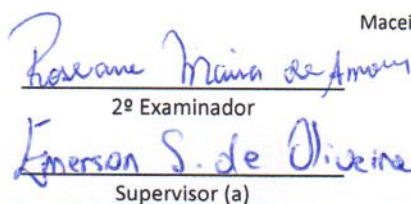 Macei
Roseane Maria de Amori
2º Examinador
Emerson S. de Oliveira
Supervisor (a)